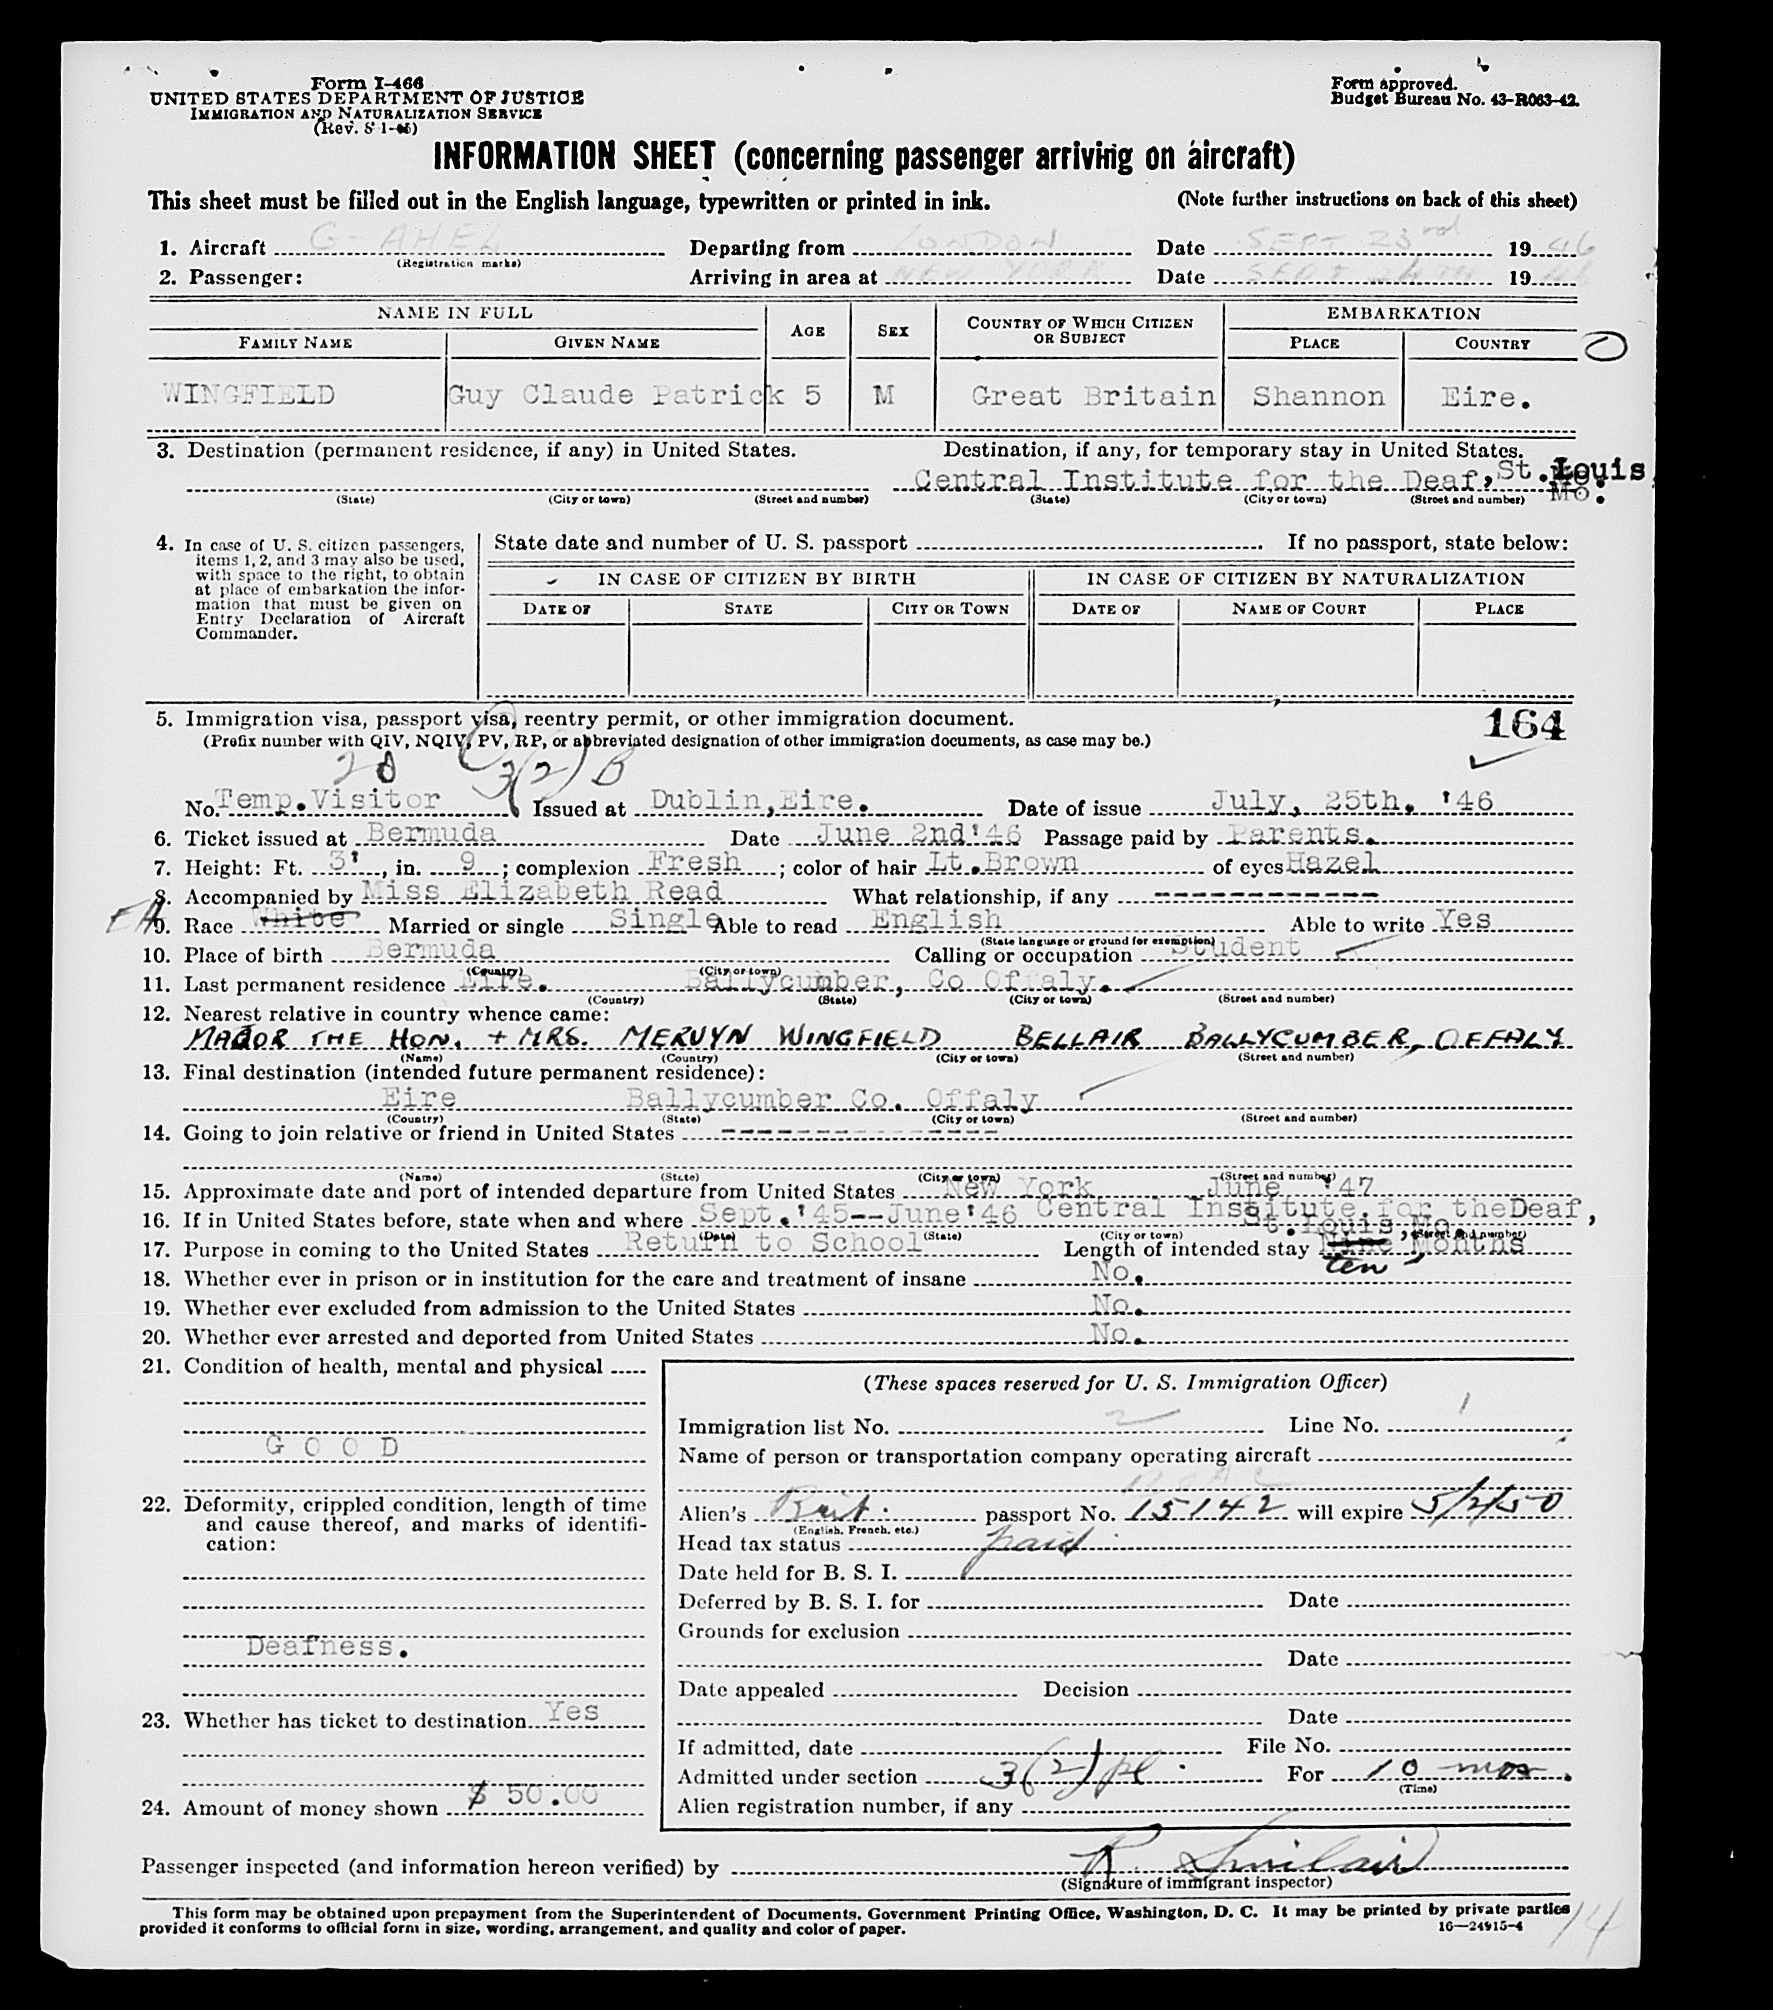 Form I-466
UNITED STATES DEPARTMENT OF JUSTICE
IMMIGRATION AND NATURALIZATION SERVICE
Form approved.
Budget Bureau No. 43-R063-42.
INFORMATION SHEET (concerning passenger arriving on aircraft)
This sheet must be filled out in the English language, typewritten or printed in ink. (Note further instructions on back of this sheet)
1. Aircraft G-AHEL Departing from LONDON Date SEPT 23rd 1946
(Registration marks)
2. Passenger: Arriving in area at NEW YORK Date SEPT 24TH 1946
NAME IN FULL AGE SEX COUNTRY OF WHICH CITIZEN OR SUBJECT EMBARKATION
FAMILY NAME GIVEN NAME PLACE COUNTRY
WINGFIELD Guy Claude Patrick 5 M Great Britain Shannon Eire.
3. Destination (permanent residence, if any) in United States. Destination, if any, for temporary stay in United States.
Central Institute for the Deaf, St. Louis Mo.
(State) (City or town) (Street and number) (State) (City or town) (Street and number)
4. In case of U. S. citizen passengers,
items 1, 2, and 3 may also be used,
with space to the right, to obtain
at place of embarkation the infor-
mation that must be given on
Entry Declaration of Aircraft
Commander.
State date and number of U. S. passport If no passport, state below:
IN CASE OF CITIZEN BY BIRTH IN CASE OF CITIZEN BY NATURALIZATION
DATE OF STATE CITY OR TOWN DATE OF NAME OF COURT PLACE
5. Immigration visa, passport visa, reentry permit, or other immigration document. 164
(Prefix number with QIV, NQIV, PV, RP, or abbreviated designation of other immigration documents, as case may be.)
3(2) B
No. Temp. Visitor Issued at Dublin, Eire. Date of issue July, 25th. '46
6. Ticket issued at Bermuda Date June 2nd '46 Passage paid by Parents.
7. Height: Ft. 3', in. 9; complexion Fresh; color of hair Lt. Brown of eyes Hazel
8. Accompanied by Miss Elizabeth Read What relationship, if any ------------
9. Race White Married or single Single Able to read English Able to write Yes
(State language or ground for exemption)
10. Place of birth Bermuda Calling or occupation Student
(Country) (City or town)
11. Last permanent residence Eire. Ballycumber, Co Offaly.
(Country) (State) (City or town) (Street and number)
12. Nearest relative in country whence came:
MAJOR THE HON. + MRS. MERVYN WINGFIELD BELLAIR BALLYCUMBER, OFFALY
(Name) (Country) (City or town) (Street and number)
13. Final destination (intended future permanent residence):
Eire Ballycumber Co. Offaly
(Country) (State) (City or town) (Street and number)
14. Going to join relative or friend in United States ---------------
(Name) (State) (City or town) (Street and number)
15. Approximate date and port of intended departure from United States New York June '47
16. If in United States before, state when and where Sept. '45--June '46 Central Institute for the Deaf,
St. Louis, Mo.
(Date) (State) (City or town) (Street and number)
17. Purpose in coming to the United States Return to School Length of intended stay Nine Months
ten
18. Whether ever in prison or in institution for the care and treatment of insane No.
19. Whether ever excluded from admission to the United States No.
20. Whether ever arrested and deported from United States No.
21. Condition of health, mental and physical
GOOD
22. Deformity, crippled condition, length of time
and cause thereof, and marks of identifi-
cation:
Deafness.
23. Whether has ticket to destination Yes
24. Amount of money shown $ 50.00
(These spaces reserved for U. S. Immigration Officer)
Immigration list No. 2 Line No. 1
Name of person or transportation company operating aircraft
Alien's Brit. passport No. 15142 will expire 5/2/50
(English, French, etc.)
Head tax status paid
Date held for B. S. I.
Deferred by B. S. I. for Date
Grounds for exclusion
Date
Date appealed Decision
Date
If admitted, date File No.
Admitted under section 3(2) For 10 mos.
(Time)
Alien registration number, if any
Passenger inspected (and information hereon verified) by R. Sinclair
(Signature of immigrant inspector)
This form may be obtained upon prepayment from the Superintendent of Documents, Government Printing Office, Washington, D. C. It may be printed by private parties
provided it conforms to official form in size, wording, arrangement, and quality and color of paper. 16—24915-4
14